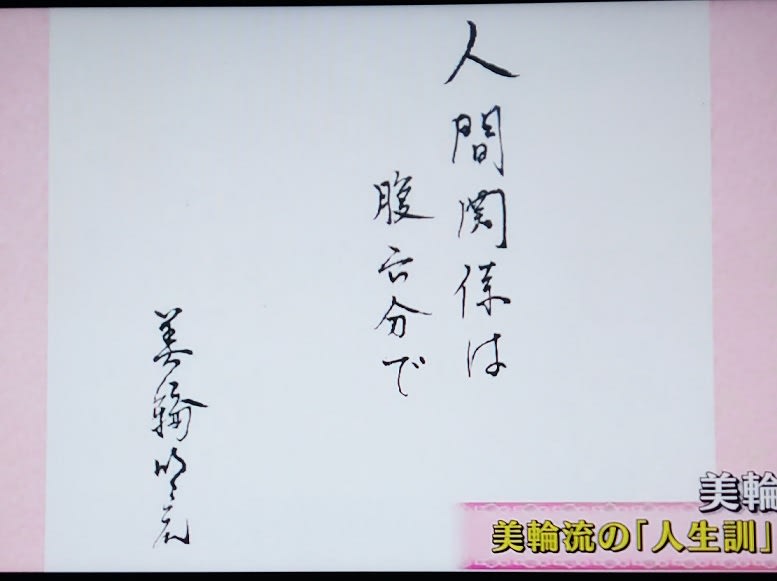 人間関係は
腹六分で
美輪明宏
美輪
美輪流の「人生訓」